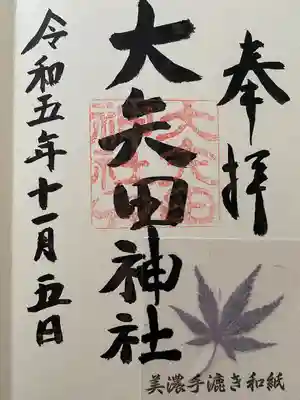 奉拝
大矢田神社
大矢田神社
令和五年十一月五日
美濃手漉き和紙